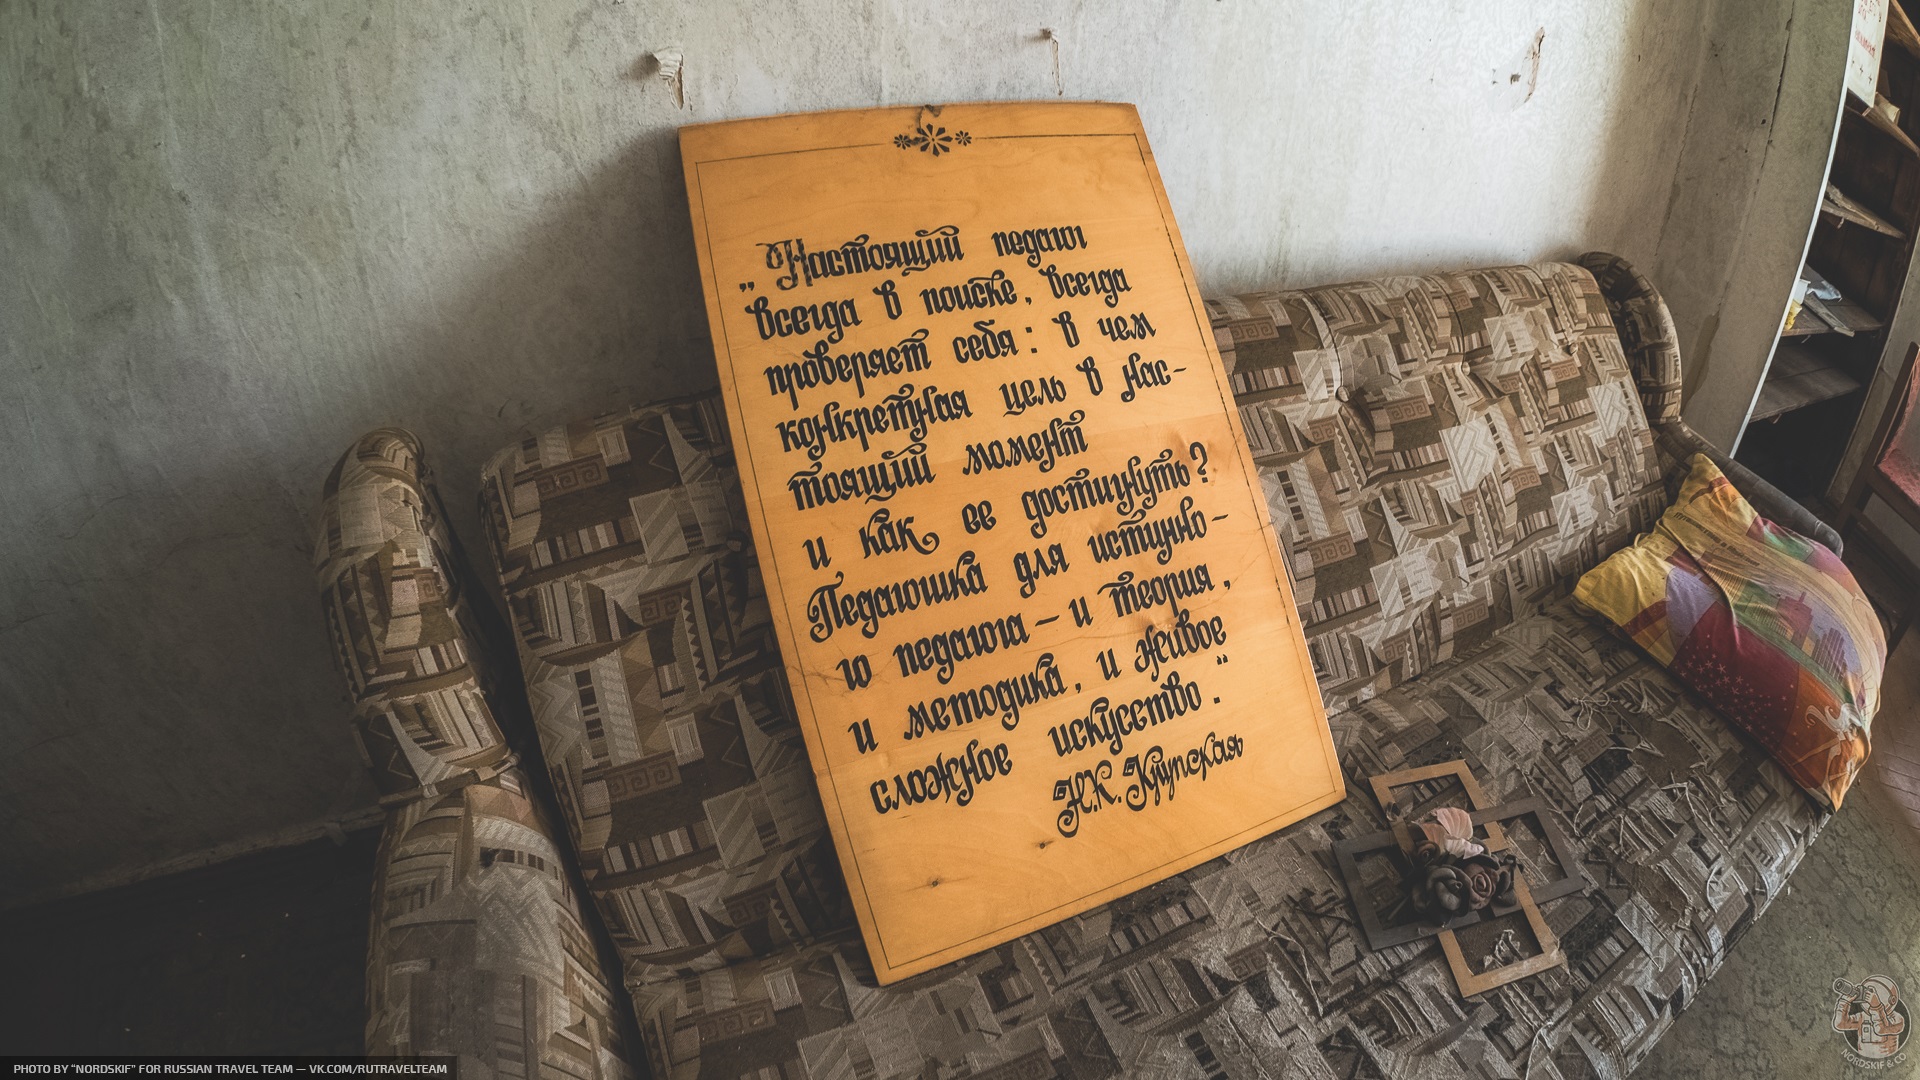 „Настоящий педагог
всегда в поиске, всегда
проверяет себя: в чем
конкретная цель в нас-
тоящий момент
и как ее достигнуть?
Педагогика для истинно-
го педагога – и теория,
и методика, и живое
сложное искусство."
Н.К. Крупская
PHOTO BY "NORDSKIF" FOR RUSSIAN TRAVEL TEAM — VK.COM/RUTRAVELTEAM
NORDSKIF & CO